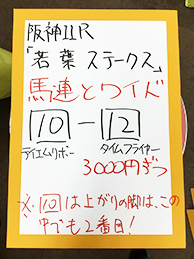 阪神11R
「若葉ステークス」
馬連とワイド
10-12
ティエムリボー タイムフライヤー
3000円ずつ
※10は上がりの脚は、この
中でも2番目!